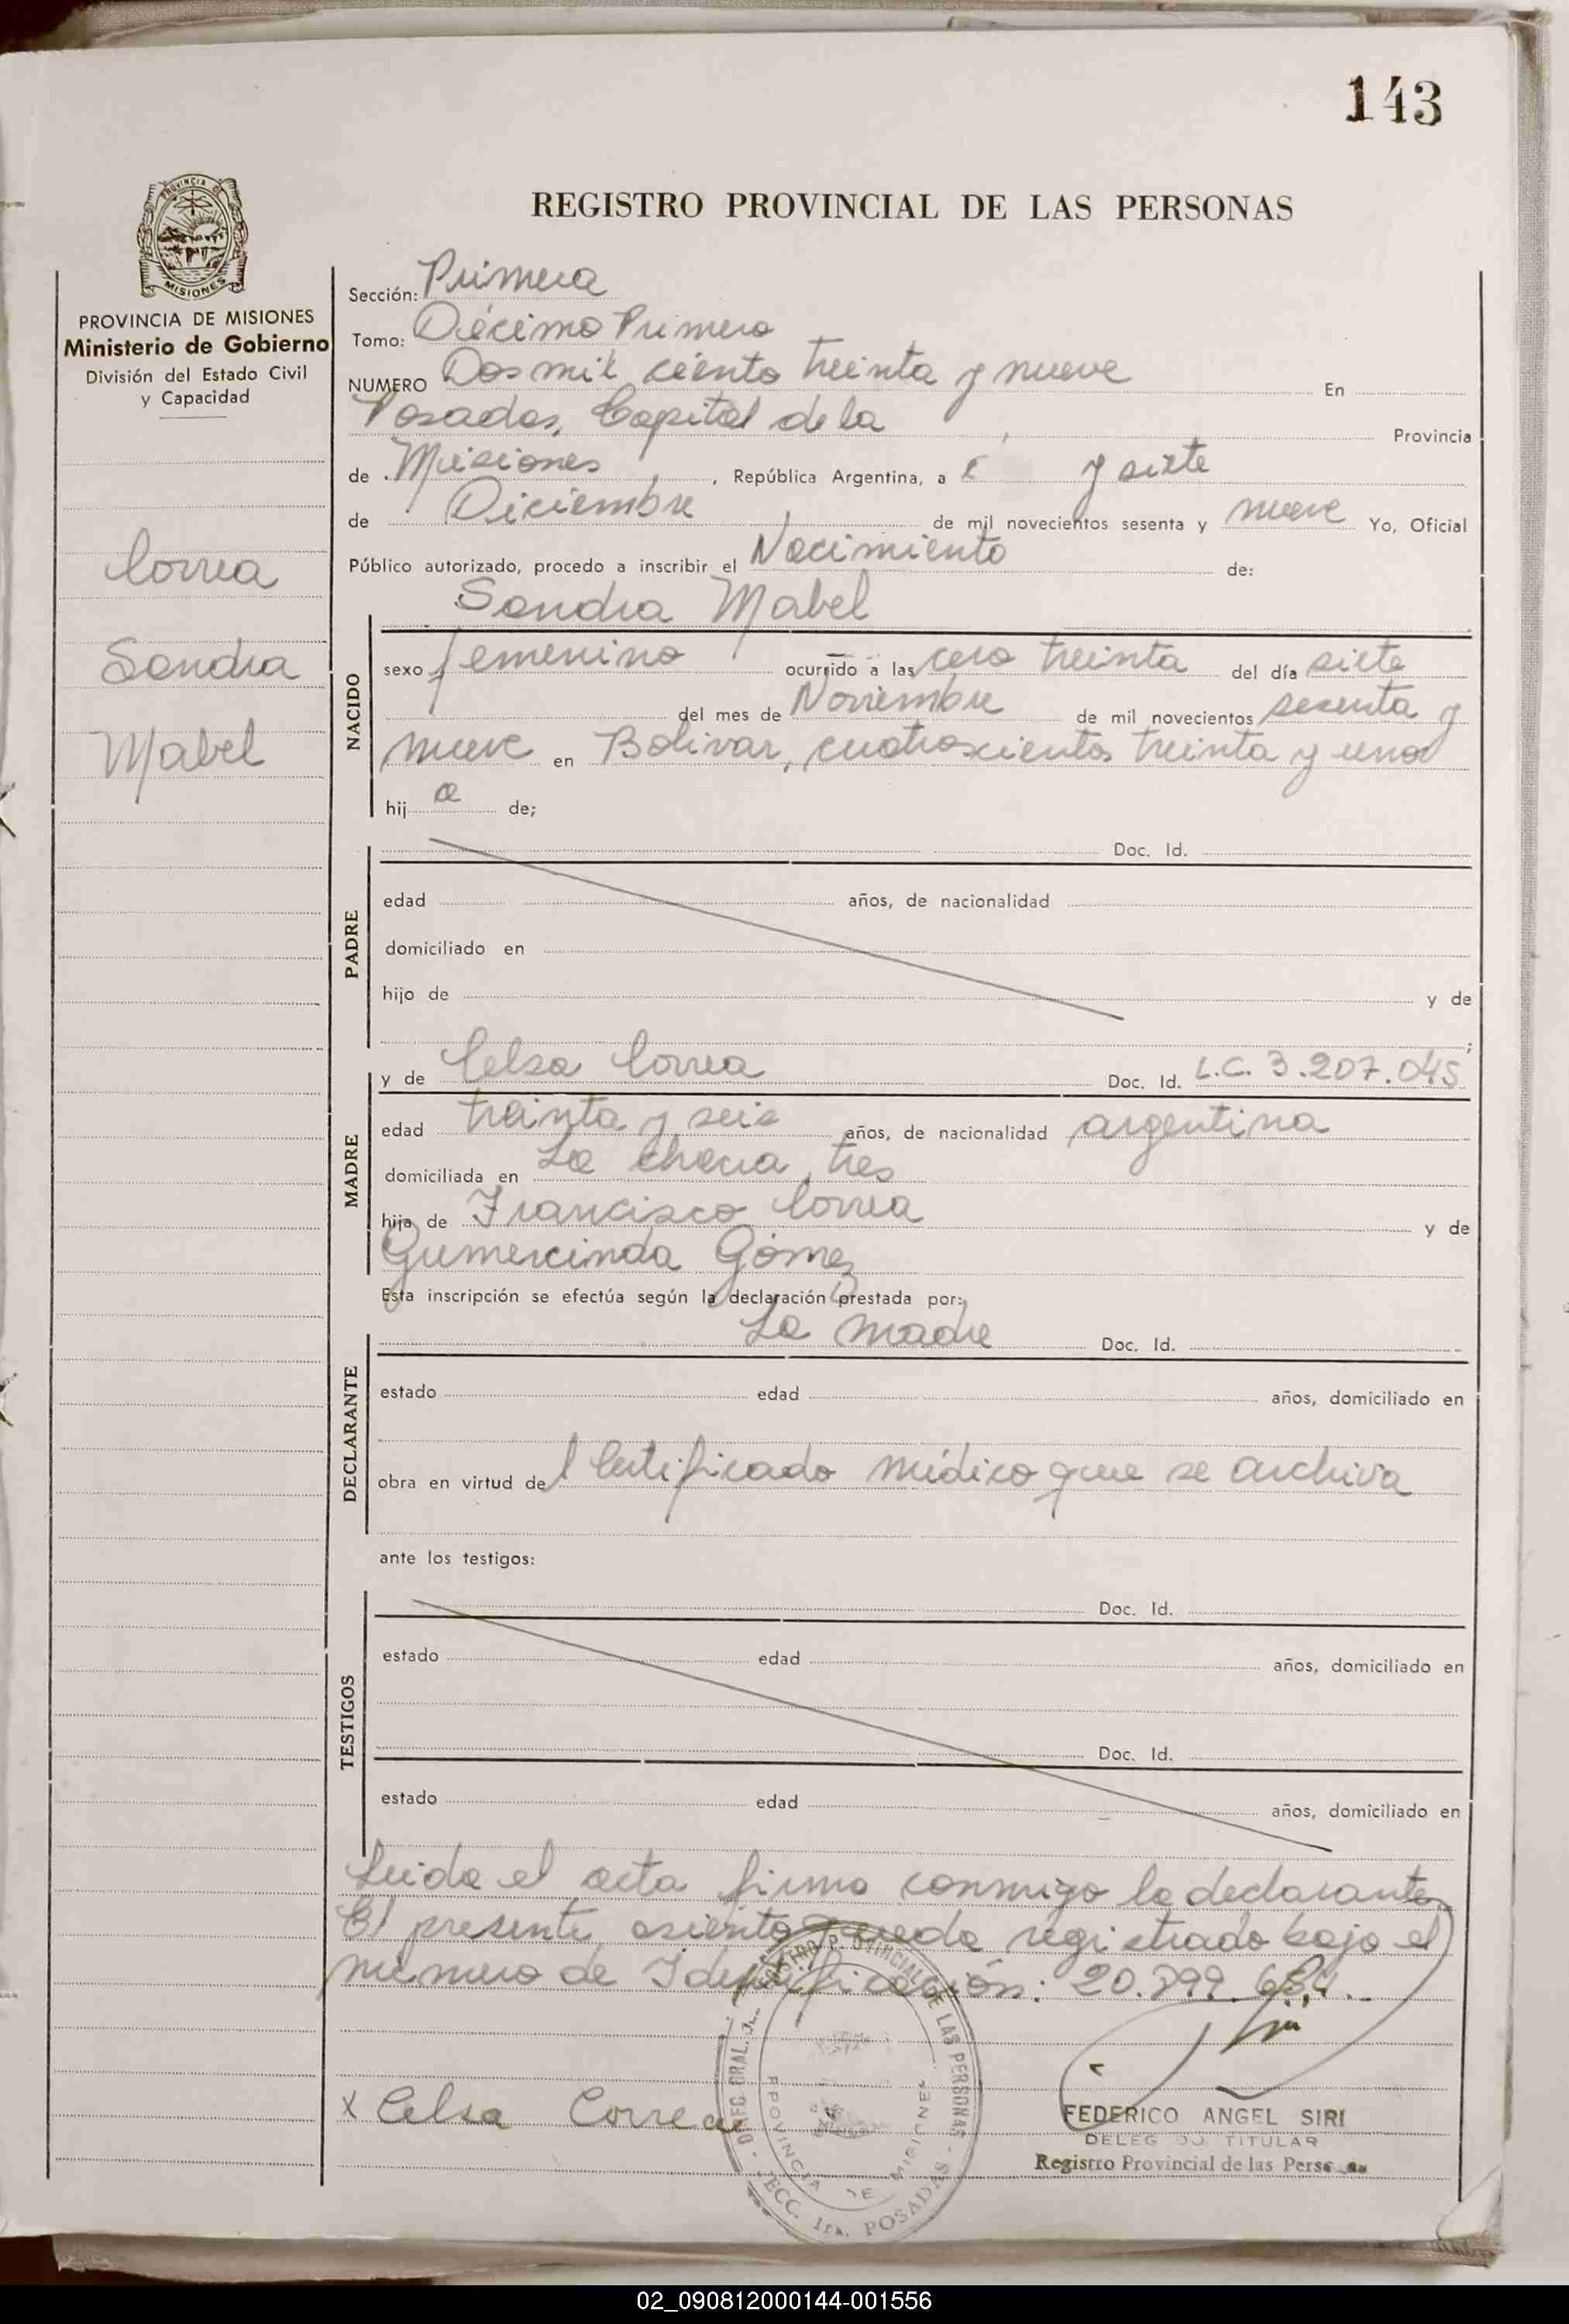 143
REGISTRO PROVINCIAL DE LAS PERSONAS
PROVINCIA DE MISIONES
Ministerio de Gobierno
División del Estado Civil
y Capacidad
Correa
Sandra
Mabel
Sección: Primera
Tomo: Décimo Primero
NUMERO Dos mil ciento treinta y nueve En
Posadas, Capital de la Provincia
de Misiones, República Argentina, a y siete
de Diciembre de mil novecientos sesenta y nueve Yo, Oficial
Público autorizado, procedo a inscribir el Nacimiento de:
Sandra Mabel
NACIDO
sexo femenino ocurrido a las cero treinta del día siete
del mes de Noviembre de mil novecientos sesenta y
nueve en Bolivar, cuatroscientos treinta y uno
hija de;
PADRE
Doc. Id.
edad años, de nacionalidad
domiciliado en
hijo de y de
MADRE
y de Celsa Correa Doc. Id. L.C. 3.207.045
edad treinta y seis años, de nacionalidad argentina
domiciliada en La Chacra, tres
hija de Francisco Correa y de
Gumercinda Gómez
Esta inscripción se efectúa según la declaración prestada por:
La madre Doc. Id.
DECLARANTE
estado edad años, domiciliado en
obra en virtud del Certificado médico que se archiva
ante los testigos:
TESTIGOS
Doc. Id.
estado edad años, domiciliado en
Doc. Id.
estado edad años, domiciliado en
Leida el acta firma conmigo la declarante
El presente asiento queda registrado bajo el
número de Identificación: 20.899.
x Celsa Correa
REGISTRO PROVINCIAL DE LAS PERSONAS
PROVINCIA DE MISIONES
SECC. 1ra. POSADAS
FEDERICO ANGEL SIRI
TITULAR
Registro Provincial de las
02_090812000144-001556